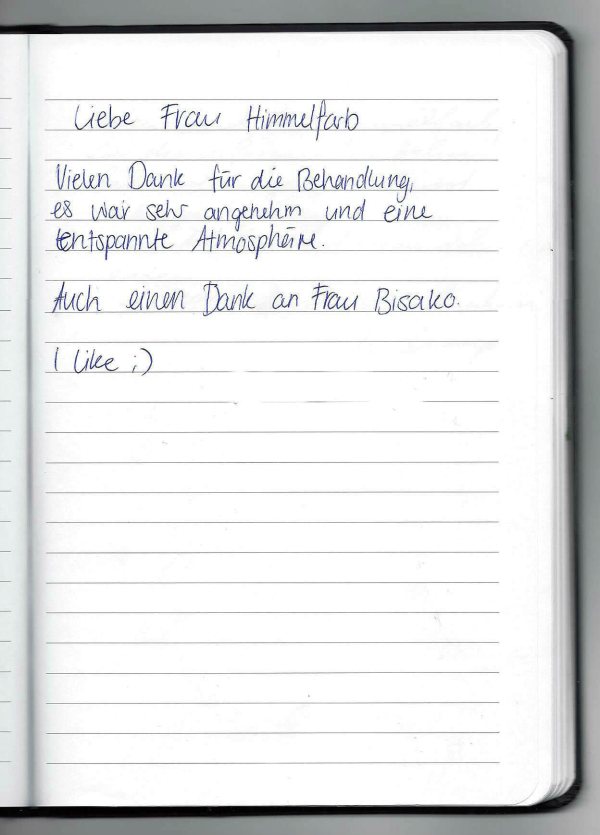 Liebe Frau Himmelfarb
Vielen Dank für die Behandlung,
es war sehr angenehm und eine
entspannte Atmosphäre.
Auch einen Dank an Frau Bisako.
I like ;)